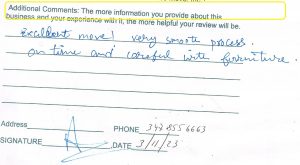 Additional Comments: The more information you provide about this
business and your experience with it, the more helpful your review will be.
Excellent move! very smooth process.
on time and careful with furniture.
Address
PHONE 347 855 6663
SIGNATURE
DATE 3/11/23